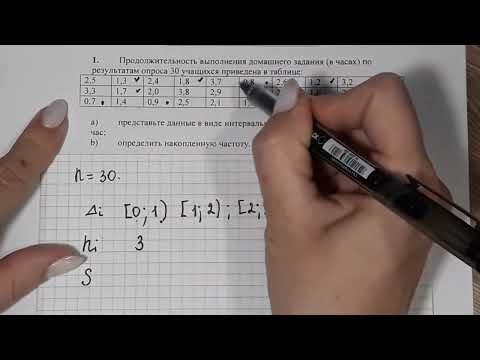 1. Продолжительность выполнения домашнего задания (в часах) по
результатам опроса 30 учащихся приведена в таблице:
2,5 1,3 2,4 1,8 3,7 0,8 1,2 3,2
3,3 1,7 2,0 3,8 2,9
0,7 1,4 0,9 2,5 2,1
a) представьте данные в виде
час;
b) определить накопленную частоту.
n = 30.
Δi [0; 1) [1; 2) ; [2;
ni 3
S